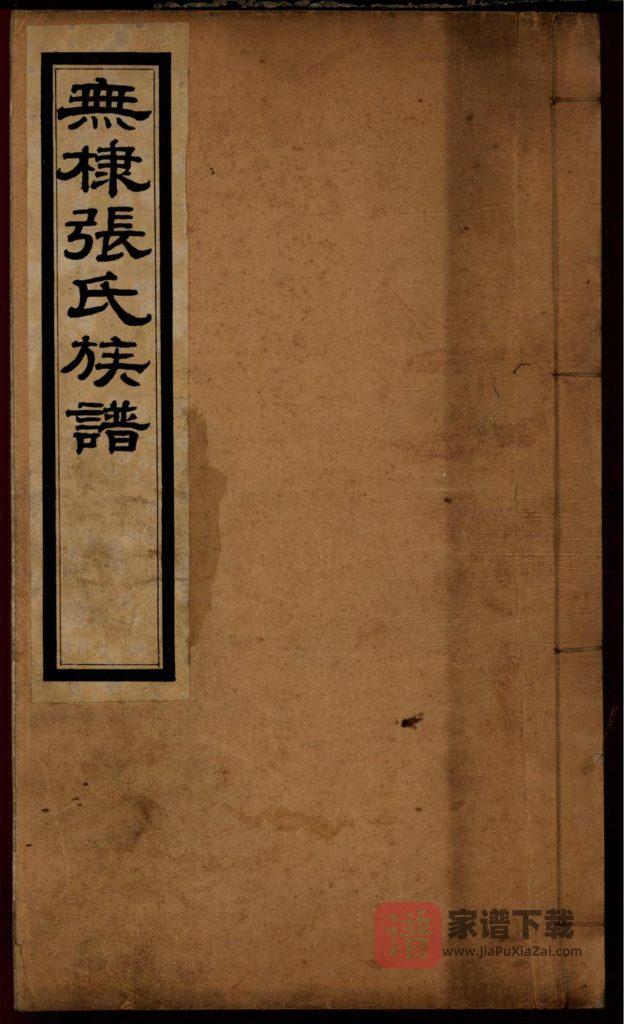 無棣張氏族譜
譜
家谱下载
www.JiaPuXiaZai.com